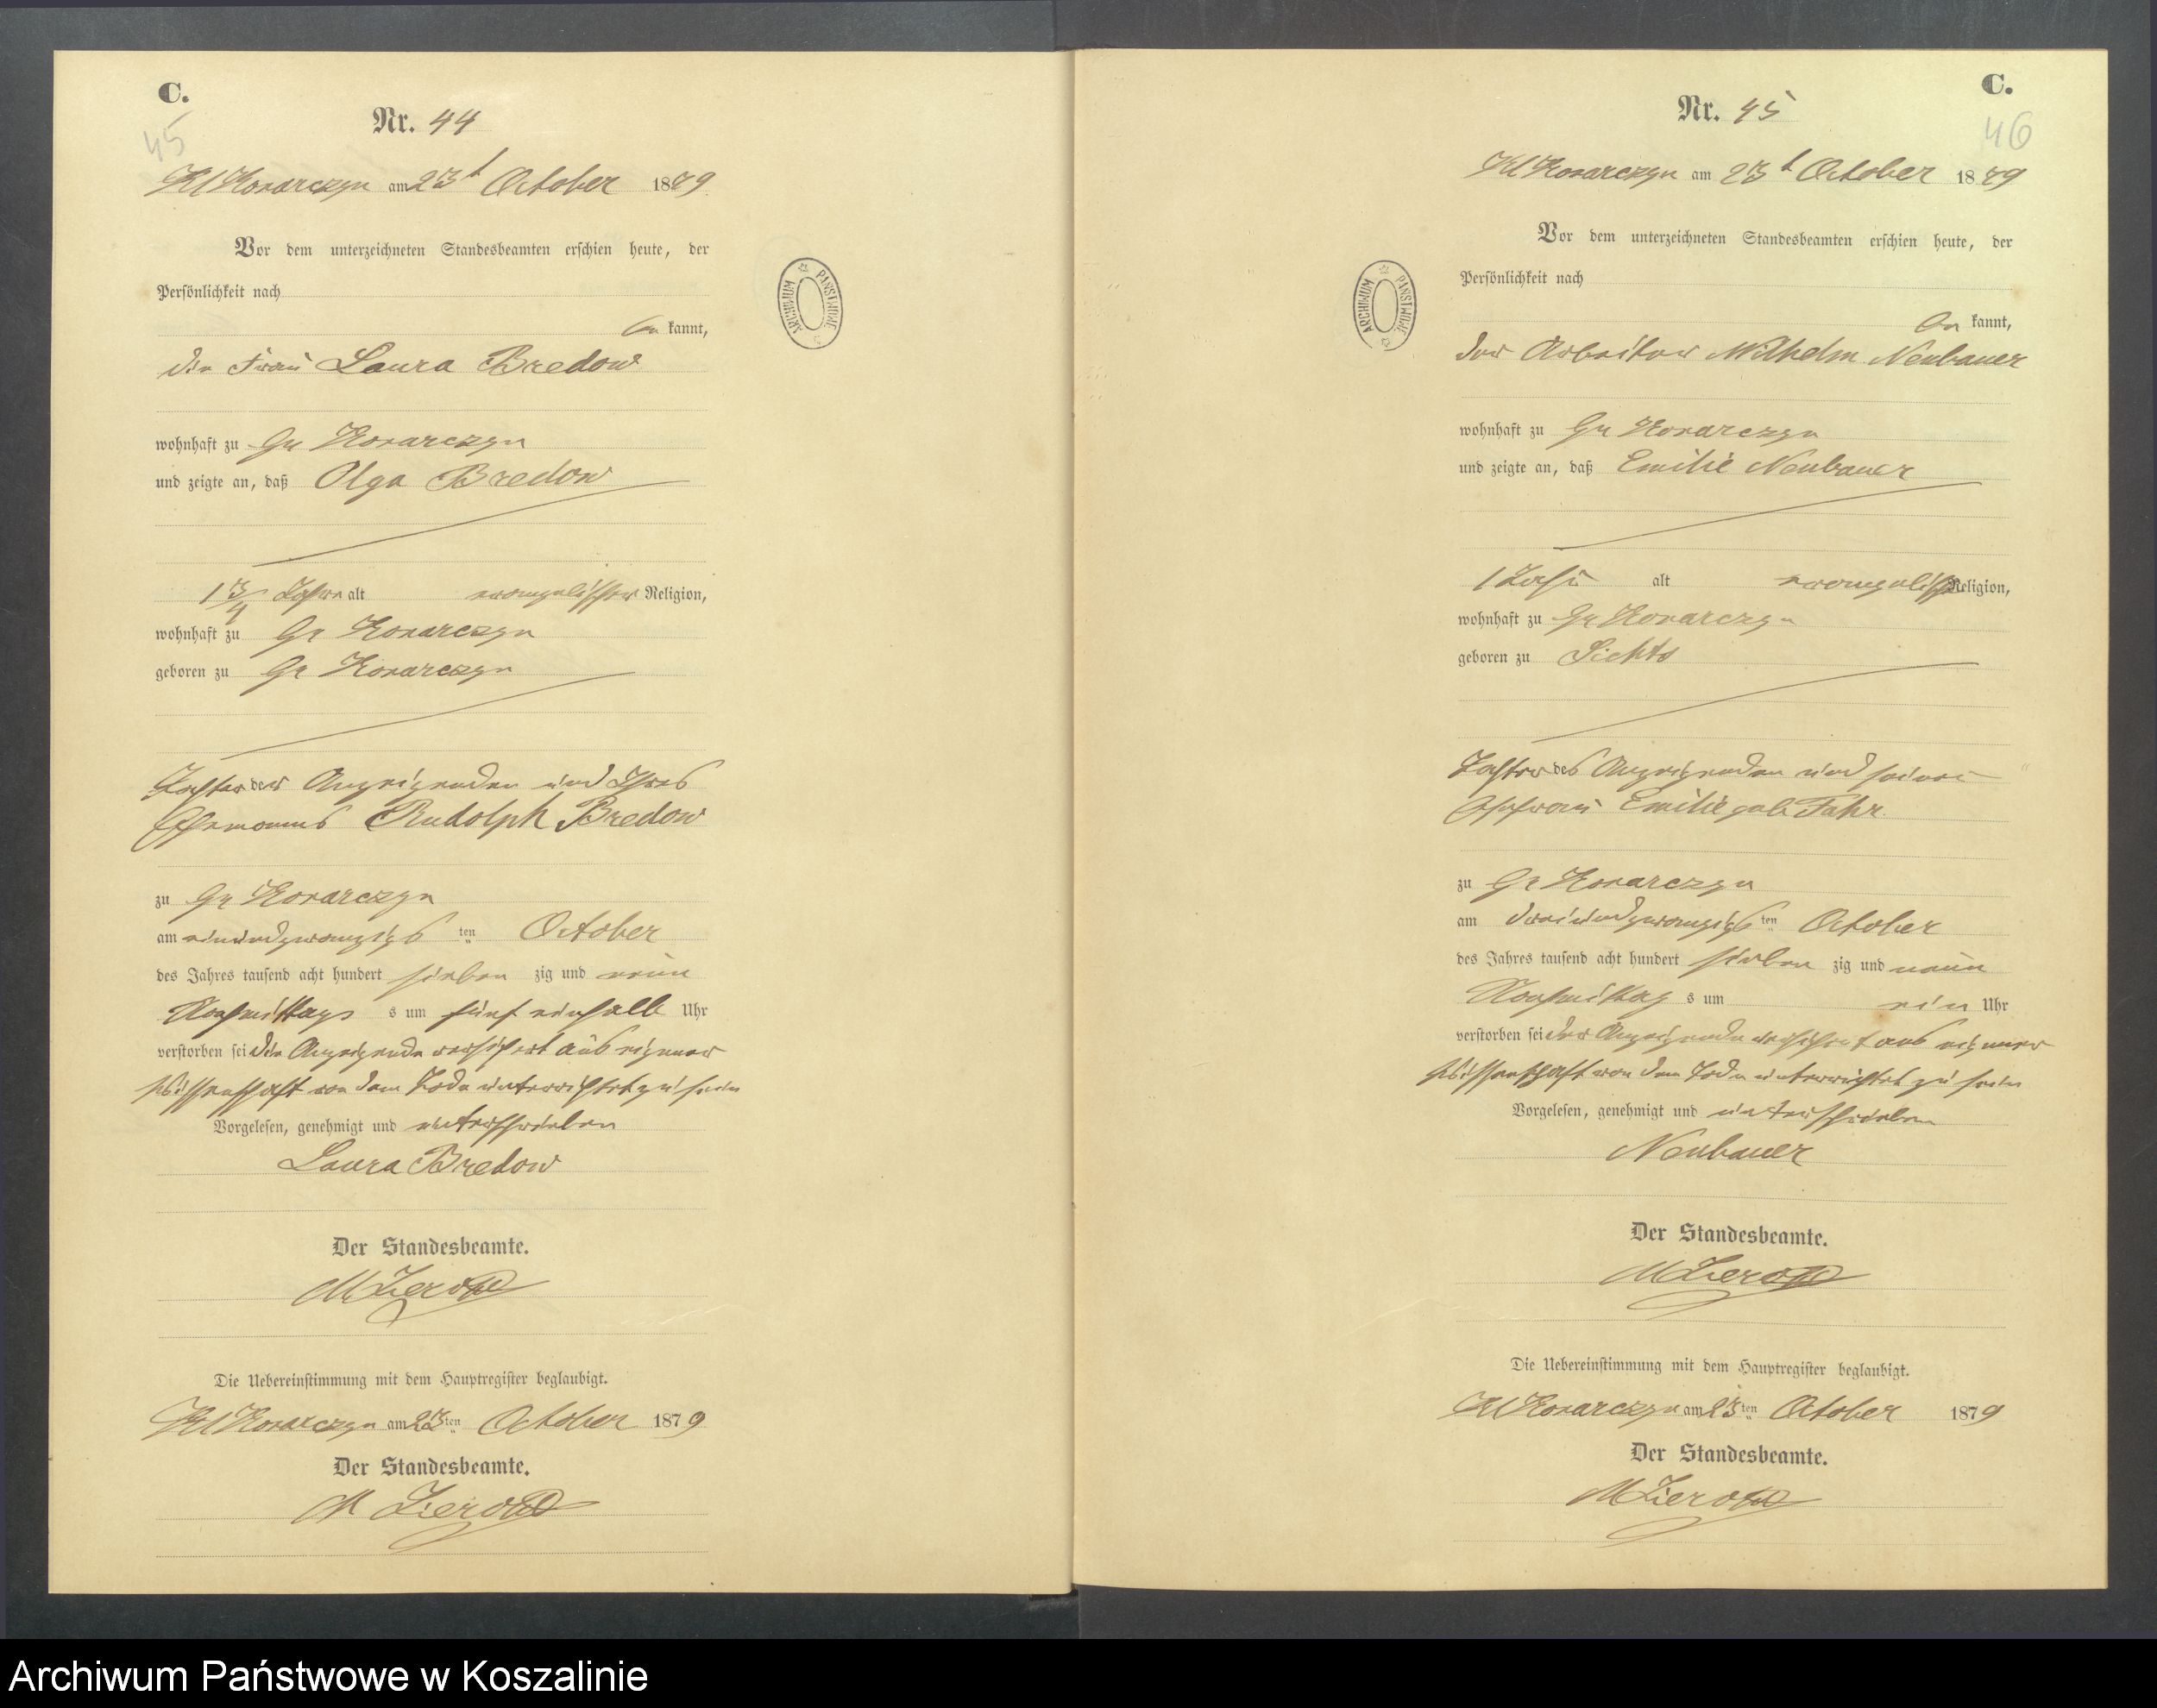 C.
45
Nr. 44
Kl Kosarczyn am 23t October 1879
Vor dem unterzeichneten Standesbeamten erschien heute, der
Persönlichkeit nach
be kannt,
die Frau Laura Bredow
wohnhaft zu Gr Kosarczyn
und zeigte an, daß Olga Bredow
1 3/4 Jahre alt evangelischer Religion,
wohnhaft zu Gr Kosarczyn
geboren zu Gr Kosarczyn
Tochter der Anzeigenden und Ihres
Ehemannes Rudolph Bredow
zu Gr Kosarczyn
am einundzwanzigs ten October
des Jahres tausend acht hundert sieben zig und neun
Nachmittags s um fünf einhalb Uhr
verstorben sei die Anzeigende versichert aus eigener
Wissenschaft von dem Tode unterrichtet zu sein
Vorgelesen, genehmigt und unterschrieben
Laura Bredow
Der Standesbeamte.
Die Uebereinstimmung mit dem Hauptregister beglaubigt.
Kl Kosarczyn am 23ten October 1879
Der Standesbeamte.
ARCHIWUM PAŃSTWOWE
C.
46
Nr. 45
Kl Kosarczyn am 23t October 1879
Vor dem unterzeichneten Standesbeamten erschien heute, der
Persönlichkeit nach
be kannt,
der Arbeiter Wilhelm Neubauer
wohnhaft zu Gr Kosarczyn
und zeigte an, daß Emilie Neubauer
1 Jahr alt evangelischer Religion,
wohnhaft zu Gr Kosarczyn
geboren zu Sichts
Tochter des Anzeigenden und seiner
Ehefrau Emilie geb Fahr.
zu Gr Kosarczyn
am dreiundzwanzigs ten October
des Jahres tausend acht hundert sieben zig und neun
Nachmittag s um ein Uhr
verstorben sei der Anzeigende versichert aus eigener
Wissenschaft von dem Tode unterrichtet zu sein
Vorgelesen, genehmigt und unterschrieben
Neubauer
Der Standesbeamte.
Die Uebereinstimmung mit dem Hauptregister beglaubigt.
Kl Kosarczyn am 23ten October 1879
Der Standesbeamte.
ARCHIWUM PAŃSTWOWE
Archiwum Państwowe w Koszalinie